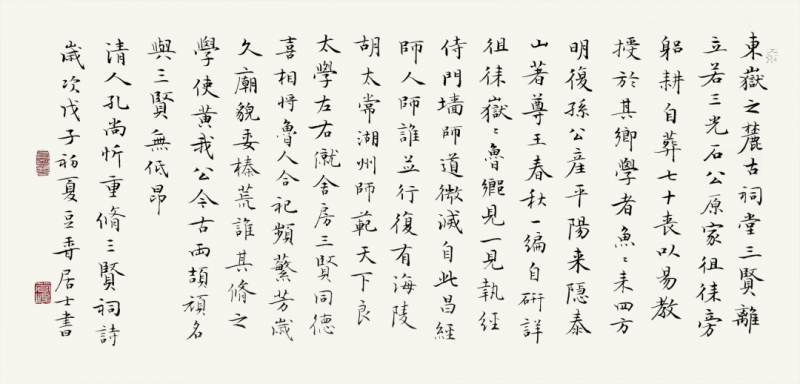 東嶽之麓古祠堂三賢離
立若三光石公原家徂徠旁
躬耕自葬七十喪以易教
授於其鄉學者魚〻来四方
明復孫公產平陽来隱泰
山著尊王春秋一編自研詳
徂徠嶽〻魯鄉見一見執經
侍門墻師道微滅自此昌經
師人師誰並行復有海陵
胡太常湖州師範天下良
太學左右僦舍房三賢同德
喜相將魯人合祀頻蘩芳歲
久廟貌委榛荒誰其脩之
學使黃我公今古兩頡頏名
與三賢無低昂
清人孔尚忻重脩三賢祠詩
歲次戊子初夏豆香居士書